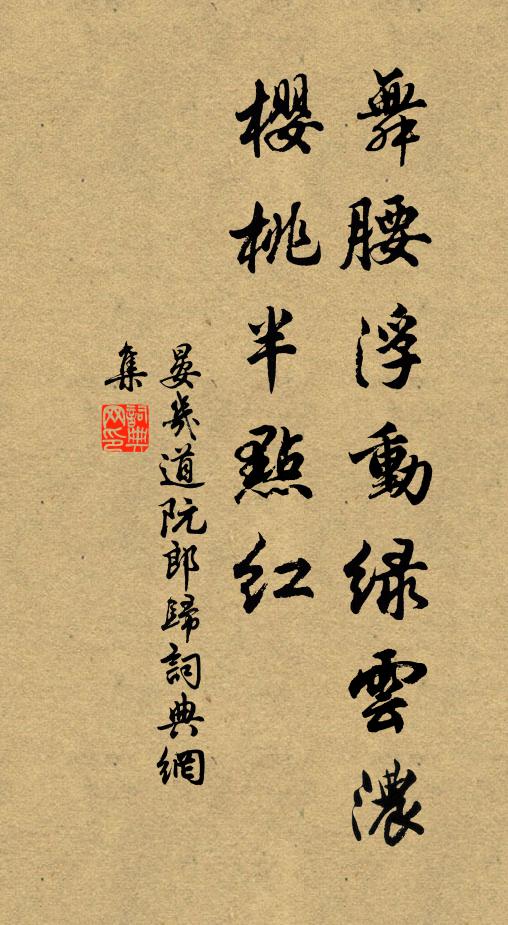 舞腰浮動緑雲濃
櫻桃半點紅
晏幾道阮郎歸詞典網
集
詞典网印